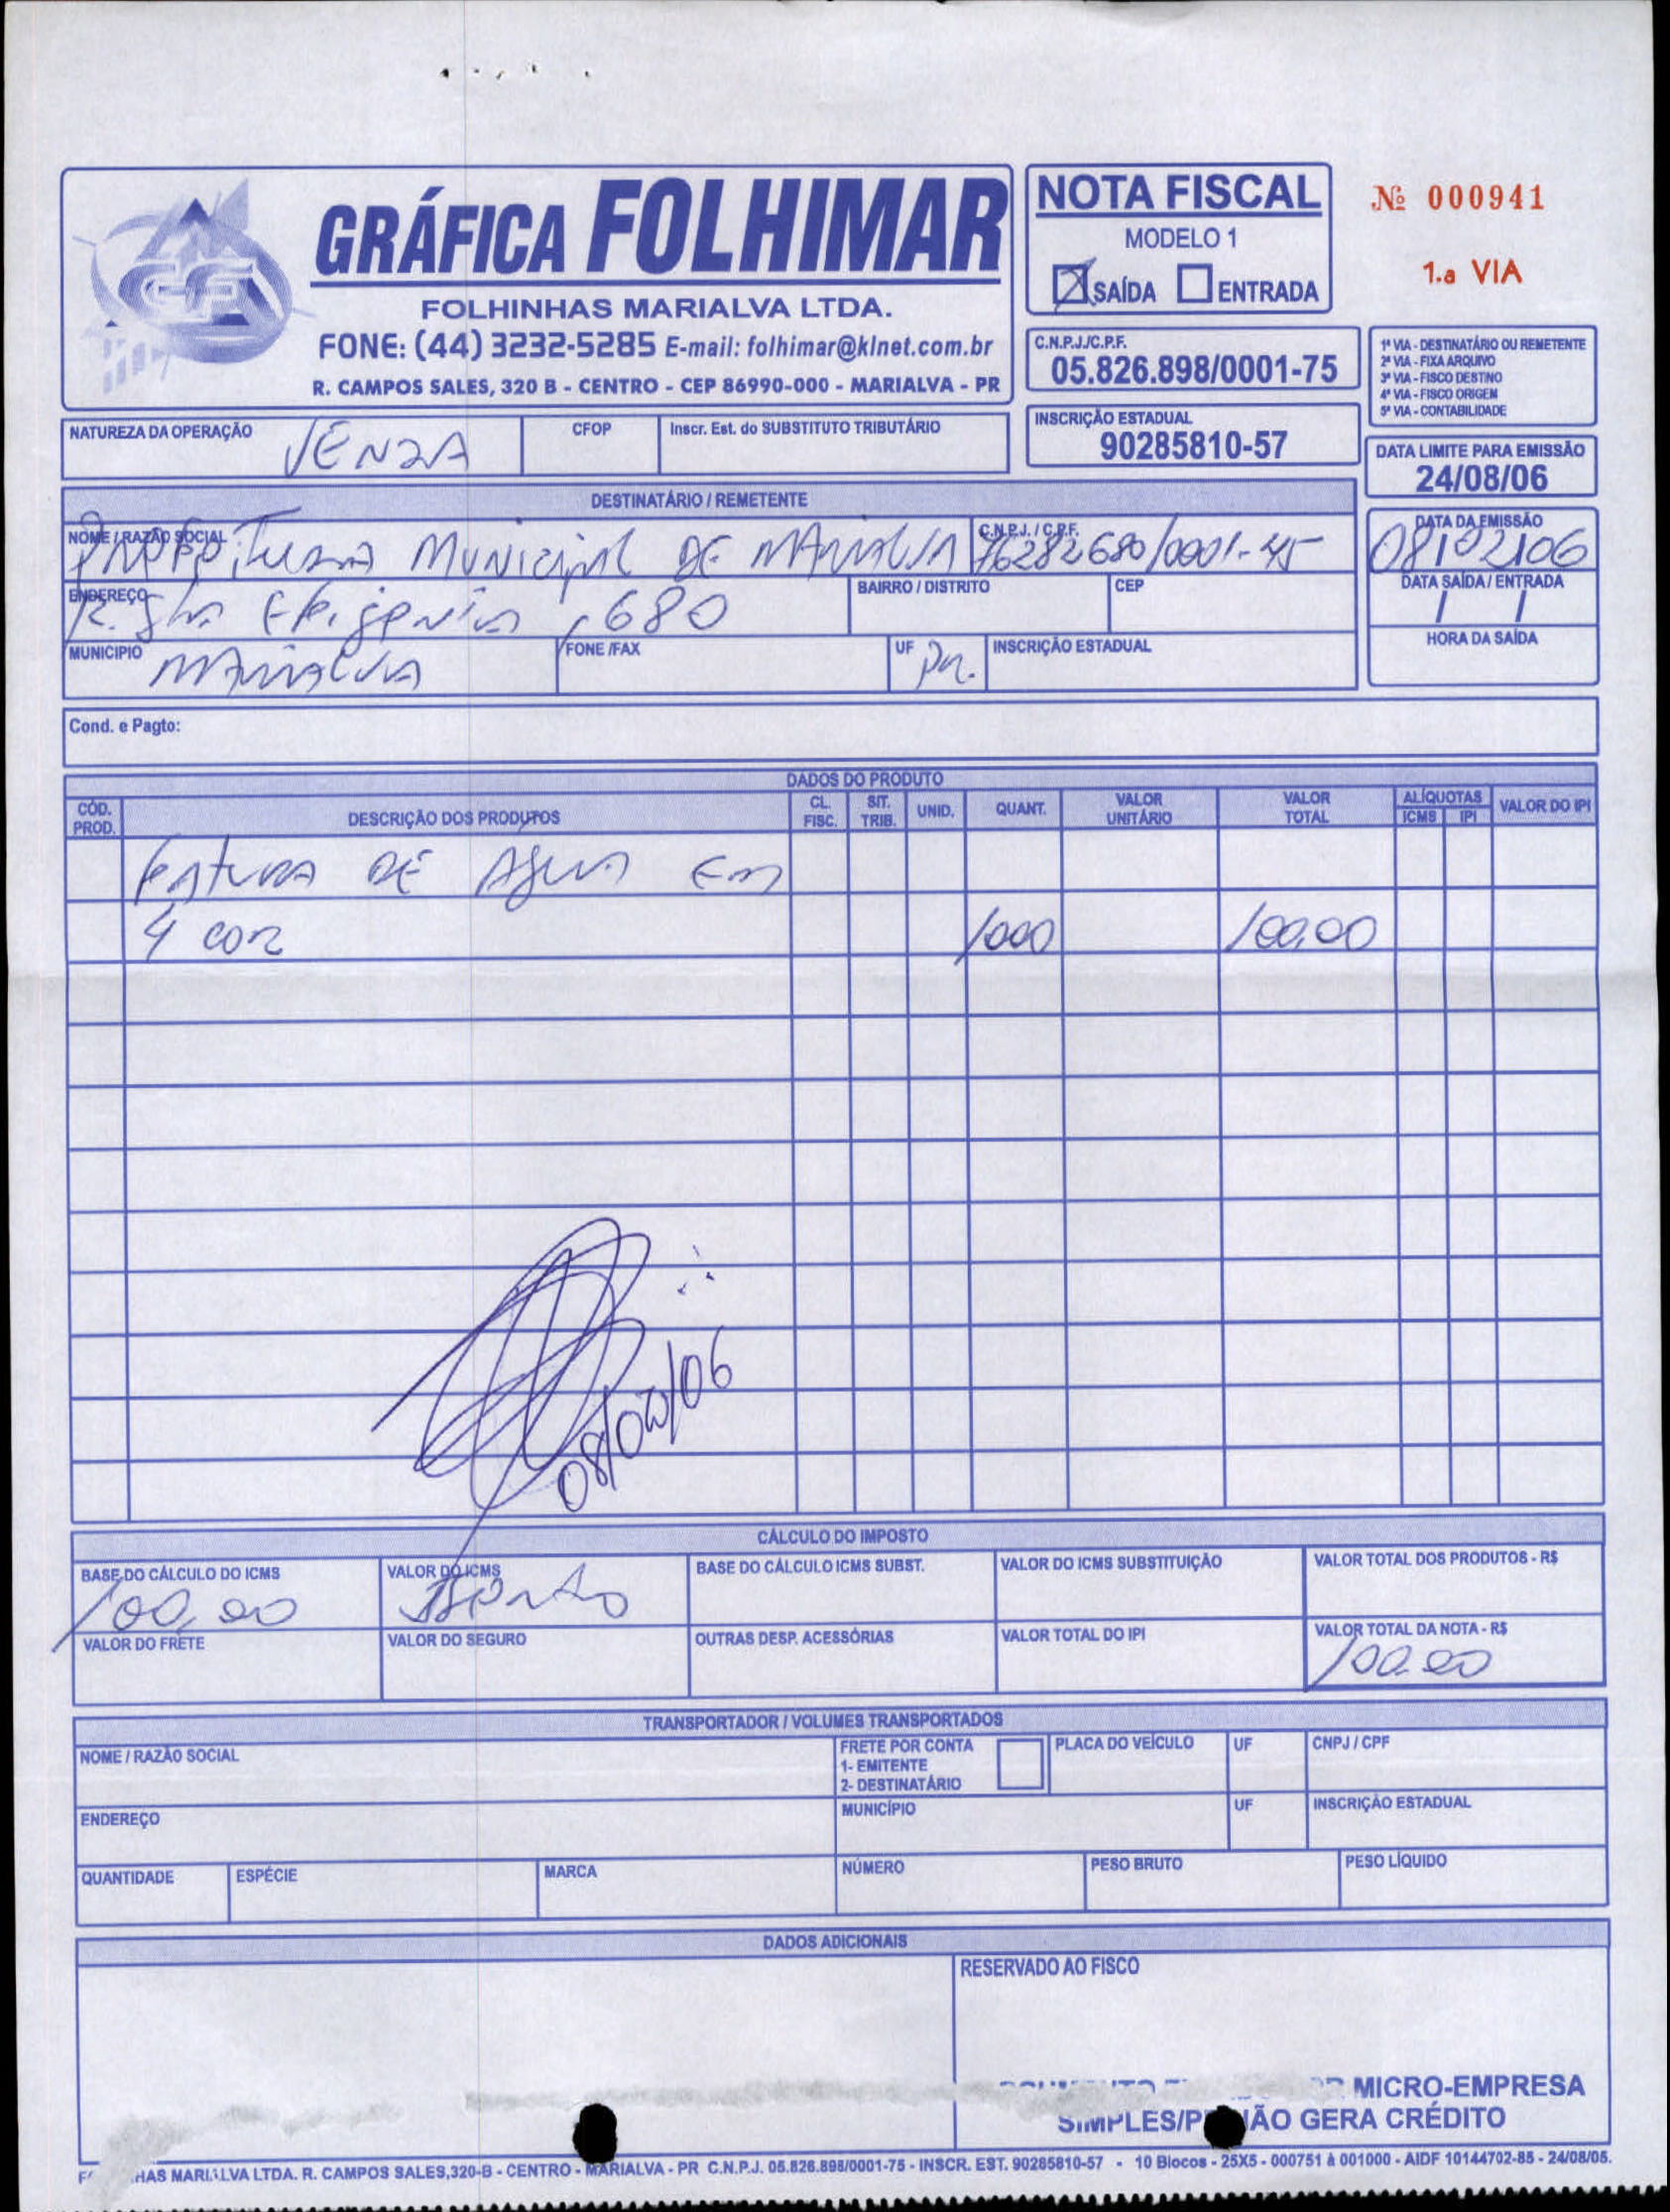 GRÁFICA FOLHIMAR
FOLHINHAS MARIALVA LTDA.
FONE: (44) 3232-5285 E-mail: folhimar@klnet.com.br
R. CAMPOS SALES, 320 B - CENTRO - CEP 86990-000 - MARIALVA - PR
NOTA FISCAL
MODELO 1
SAÍDA ENTRADA
Nº 000941
1.a VIA
C.N.P.J./C.P.F.
05.826.898/0001-75
1ª VIA - DESTINATÁRIO OU REMETENTE
2ª VIA - FIXA ARQUIVO
3ª VIA - FISCO DESTINO
4ª VIA - FISCO ORIGEM
5ª VIA - CONTABILIDADE
NATUREZA DA OPERAÇÃO VENDA
CFOP
Inscr. Est. do SUBSTITUTO TRIBUTÁRIO
INSCRIÇÃO ESTADUAL
90285810-57
DATA LIMITE PARA EMISSÃO
24/08/06
DESTINATÁRIO / REMETENTE
NOME / RAZÃO SOCIAL Prefeitura Municipal DE Marialva
C.N.P.J. / C.P.F. 76282680/0001-45
DATA DA EMISSÃO
08/02/06
ENDEREÇO R. Sta Efigenia, 680
BAIRRO / DISTRITO
CEP
DATA SAÍDA / ENTRADA
/ /
MUNICIPIO Marialva
FONE /FAX
UF Pr.
INSCRIÇÃO ESTADUAL
HORA DA SAÍDA
Cond. e Pagto:
DADOS DO PRODUTO
CÓD. PROD.
DESCRIÇÃO DOS PRODUTOS
CL. FISC.
SIT. TRIB.
UNID.
QUANT.
VALOR UNITÁRIO
VALOR TOTAL
ALÍQUOTAS
ICMS IPI
VALOR DO IPI
Fatura DE Agua Em
4 cor 1000 100,00
08/02/06
CÁLCULO DO IMPOSTO
BASE DO CÁLCULO DO ICMS
100,00
VALOR DO ICMS
Isento
BASE DO CÁLCULO ICMS SUBST.
VALOR DO ICMS SUBSTITUIÇÃO
VALOR TOTAL DOS PRODUTOS - R$
VALOR DO FRETE
VALOR DO SEGURO
OUTRAS DESP. ACESSÓRIAS
VALOR TOTAL DO IPI
VALOR TOTAL DA NOTA - R$
100,00
TRANSPORTADOR / VOLUMES TRANSPORTADOS
NOME / RAZÃO SOCIAL
FRETE POR CONTA
1- EMITENTE
2- DESTINATÁRIO
PLACA DO VEÍCULO
UF
CNPJ / CPF
ENDEREÇO
MUNICÍPIO
UF
INSCRIÇÃO ESTADUAL
QUANTIDADE
ESPÉCIE
MARCA
NÚMERO
PESO BRUTO
PESO LÍQUIDO
DADOS ADICIONAIS
RESERVADO AO FISCO
MICRO-EMPRESA
SIMPLES/P ÃO GERA CRÉDITO
MARIALVA LTDA. R. CAMPOS SALES,320-B - CENTRO - MARIALVA - PR C.N.P.J. 05.826.898/0001-75 - INSCR. EST. 90285810-57 - 10 Blocos - 25X5 - 000751 à 001000 - AIDF 10144702-85 - 24/08/05.